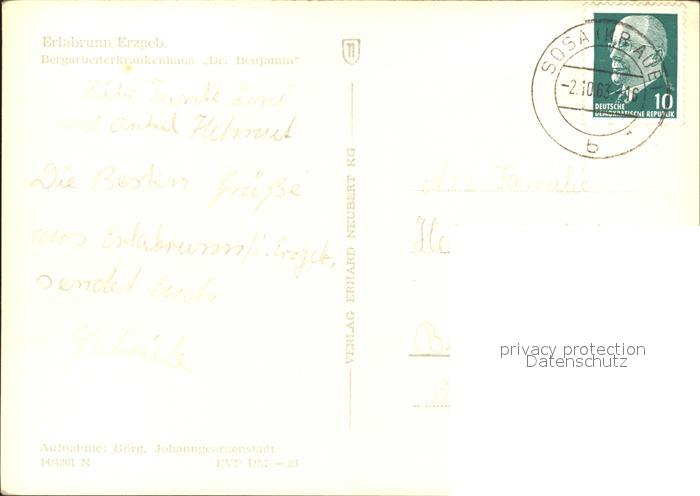 Erlabrunn Erzgeb.
Bergarbeiterkrankenhaus „Dr. Benjamin“
Liebe Tante Leni
und Onkel Helmut
Die Besten Grüße
aus Erlabrunn/i. Erzgeb.
sendet Euch
Gabriele
Aufnahme: Görg, Johanngeorgenstadt
14/4261 N EVP DM —.23
VERLAG ERHARD NEUBERT KG
SOSA (KR. AUE)
-2.10.63
b
10
DEUTSCHE
DEMOKRATISCHE REPUBLIK
An Familie
privacy protection
Datenschutz